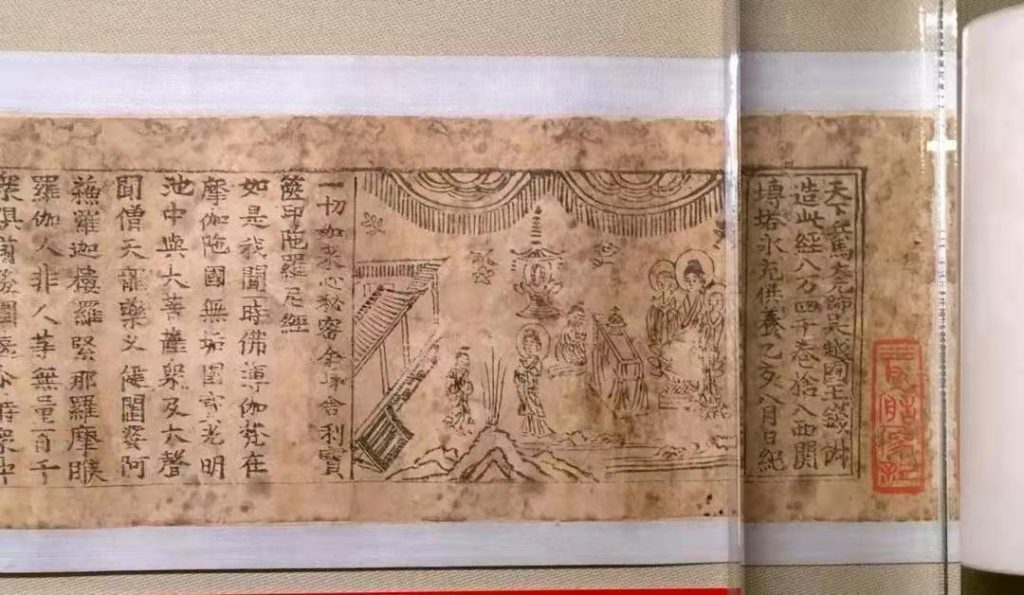 天下兵馬大元帥吳越國王錢俶
造此經八万四千卷捨入西關
塼塔永充供養乙亥八月日紀
一切如来心秘密全身舍利寳
篋印陁羅尼經
如是我聞一時佛薄伽梵在
摩伽陁國無垢園寳光明
池中與大菩薩衆及大聲
聞僧天龍藥叉健闥婆阿
蘓羅迦樓羅緊那羅摩睺
羅伽人非人等無量百千
衆俱前後圍遶尒時衆中